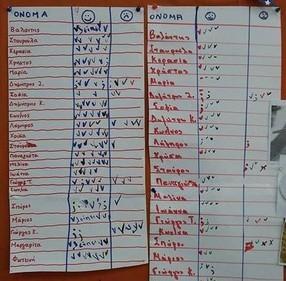 ΟΝΟΜΑ
Βαλάντης
Σταυρούλα
Κερασία
Χρήστος
Μαρία
Δημήτρης Σ.
Σοφία
Δημήτρης Κ.
Κων/νος
Λάμπρος
Χρύσα
Σταύρος
Παναγιώτα
Μελίνα
Ιωάννα
Γιώργος Τ.
Σπύρος
Μάριος
Γιώργος Κ.
Μαργαρίτα
Φωτεινή
ΟΝΟΜΑ
Βαλάντης
Σταυρούλα
Κερασία
Χρήστος
Μαρία
Δημήτρης Σ.
Σοφία
Δημήτρης Κ.
Κων/νος
Λάμπρος
Χρύσα
Σταύρος
Παναγιώτα
Μελίνα
Ιωάννα
Γιώργος Τ.
Σπύρος
Μάριος
Γιώργος Κ.